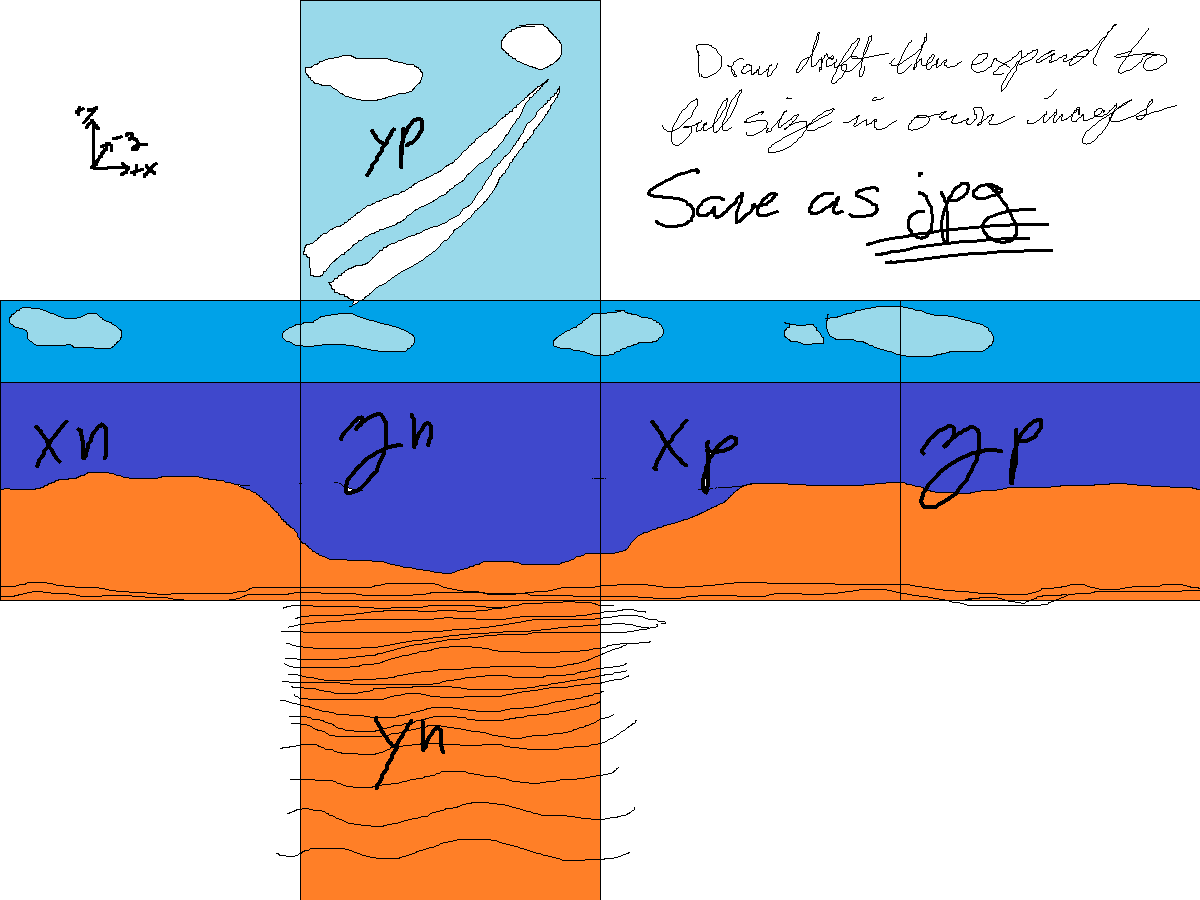 Draw draft then expand to
full size in own images
Save as jpg
+y
-z
+x
yp
xn
zn
xp
zp
yn